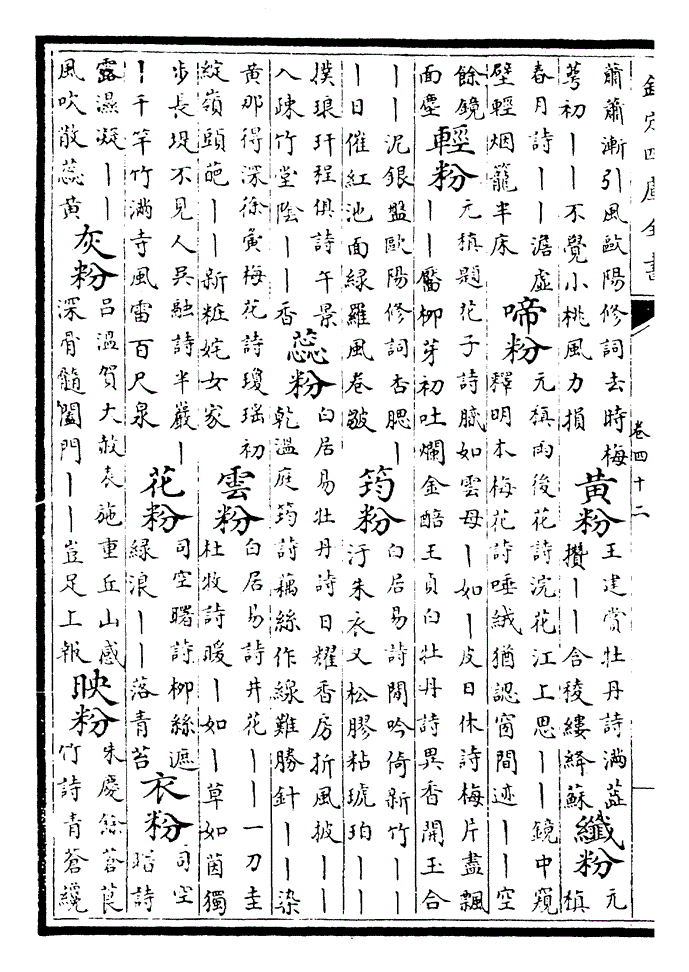 欽定四庫全書　卷四十二
蕭蕭漸引風歐陽修詞去時梅萼初丨丨不覺小桃風力損　黃粉　王建賞牡丹詩滿蕊攢丨丨含稜縷絳蘇　纖粉　元稹
春月詩丨丨澹虛壁輕烟籠半床　啼粉　元稹雨後花詩浣花江上思丨丨鏡中窺釋明本梅花詩唾絨猶認窗間迹丨丨空
餘鏡面塵　輕粉　元稹題花子詩膩如雲母丨如丨皮日休詩梅片盡飄丨丨黶柳芽初吐爛金醅王貞白牡丹詩異香開玉合
丨丨泥銀盤歐陽修詞杏腮丨丨日催紅池面綠羅風卷皺　筠粉　白居易詩閒吟倚新竹丨丨汙朱衣又松膠粘琥珀丨丨
撲琅玕程俱詩午景入疎竹堂陰丨丨香　蕊粉　白居易牡丹詩日耀香房折風披丨丨乾溫庭筠詩藕絲作線難勝針丨丨染
黃那得深徐夤梅花詩瓊瑤初綻嶺頭葩丨丨新粧姹女家　雲粉　白居易詩井花丨丨一刀圭杜牧詩暖丨如丨草如茵獨
步長堤不見人吳融詩半巖丨丨千竿竹滿寺風雷百尺泉　花粉　司空曙詩柳絲遮綠浪丨丨落青苔　衣粉　司空曙詩
露濕凝丨丨風吹散蕊黃　灰粉　呂溫賀大赦表施重丘山感深骨髓闔門丨丨豈足上報　映粉　朱慶餘蒼莨竹詩青蒼纔